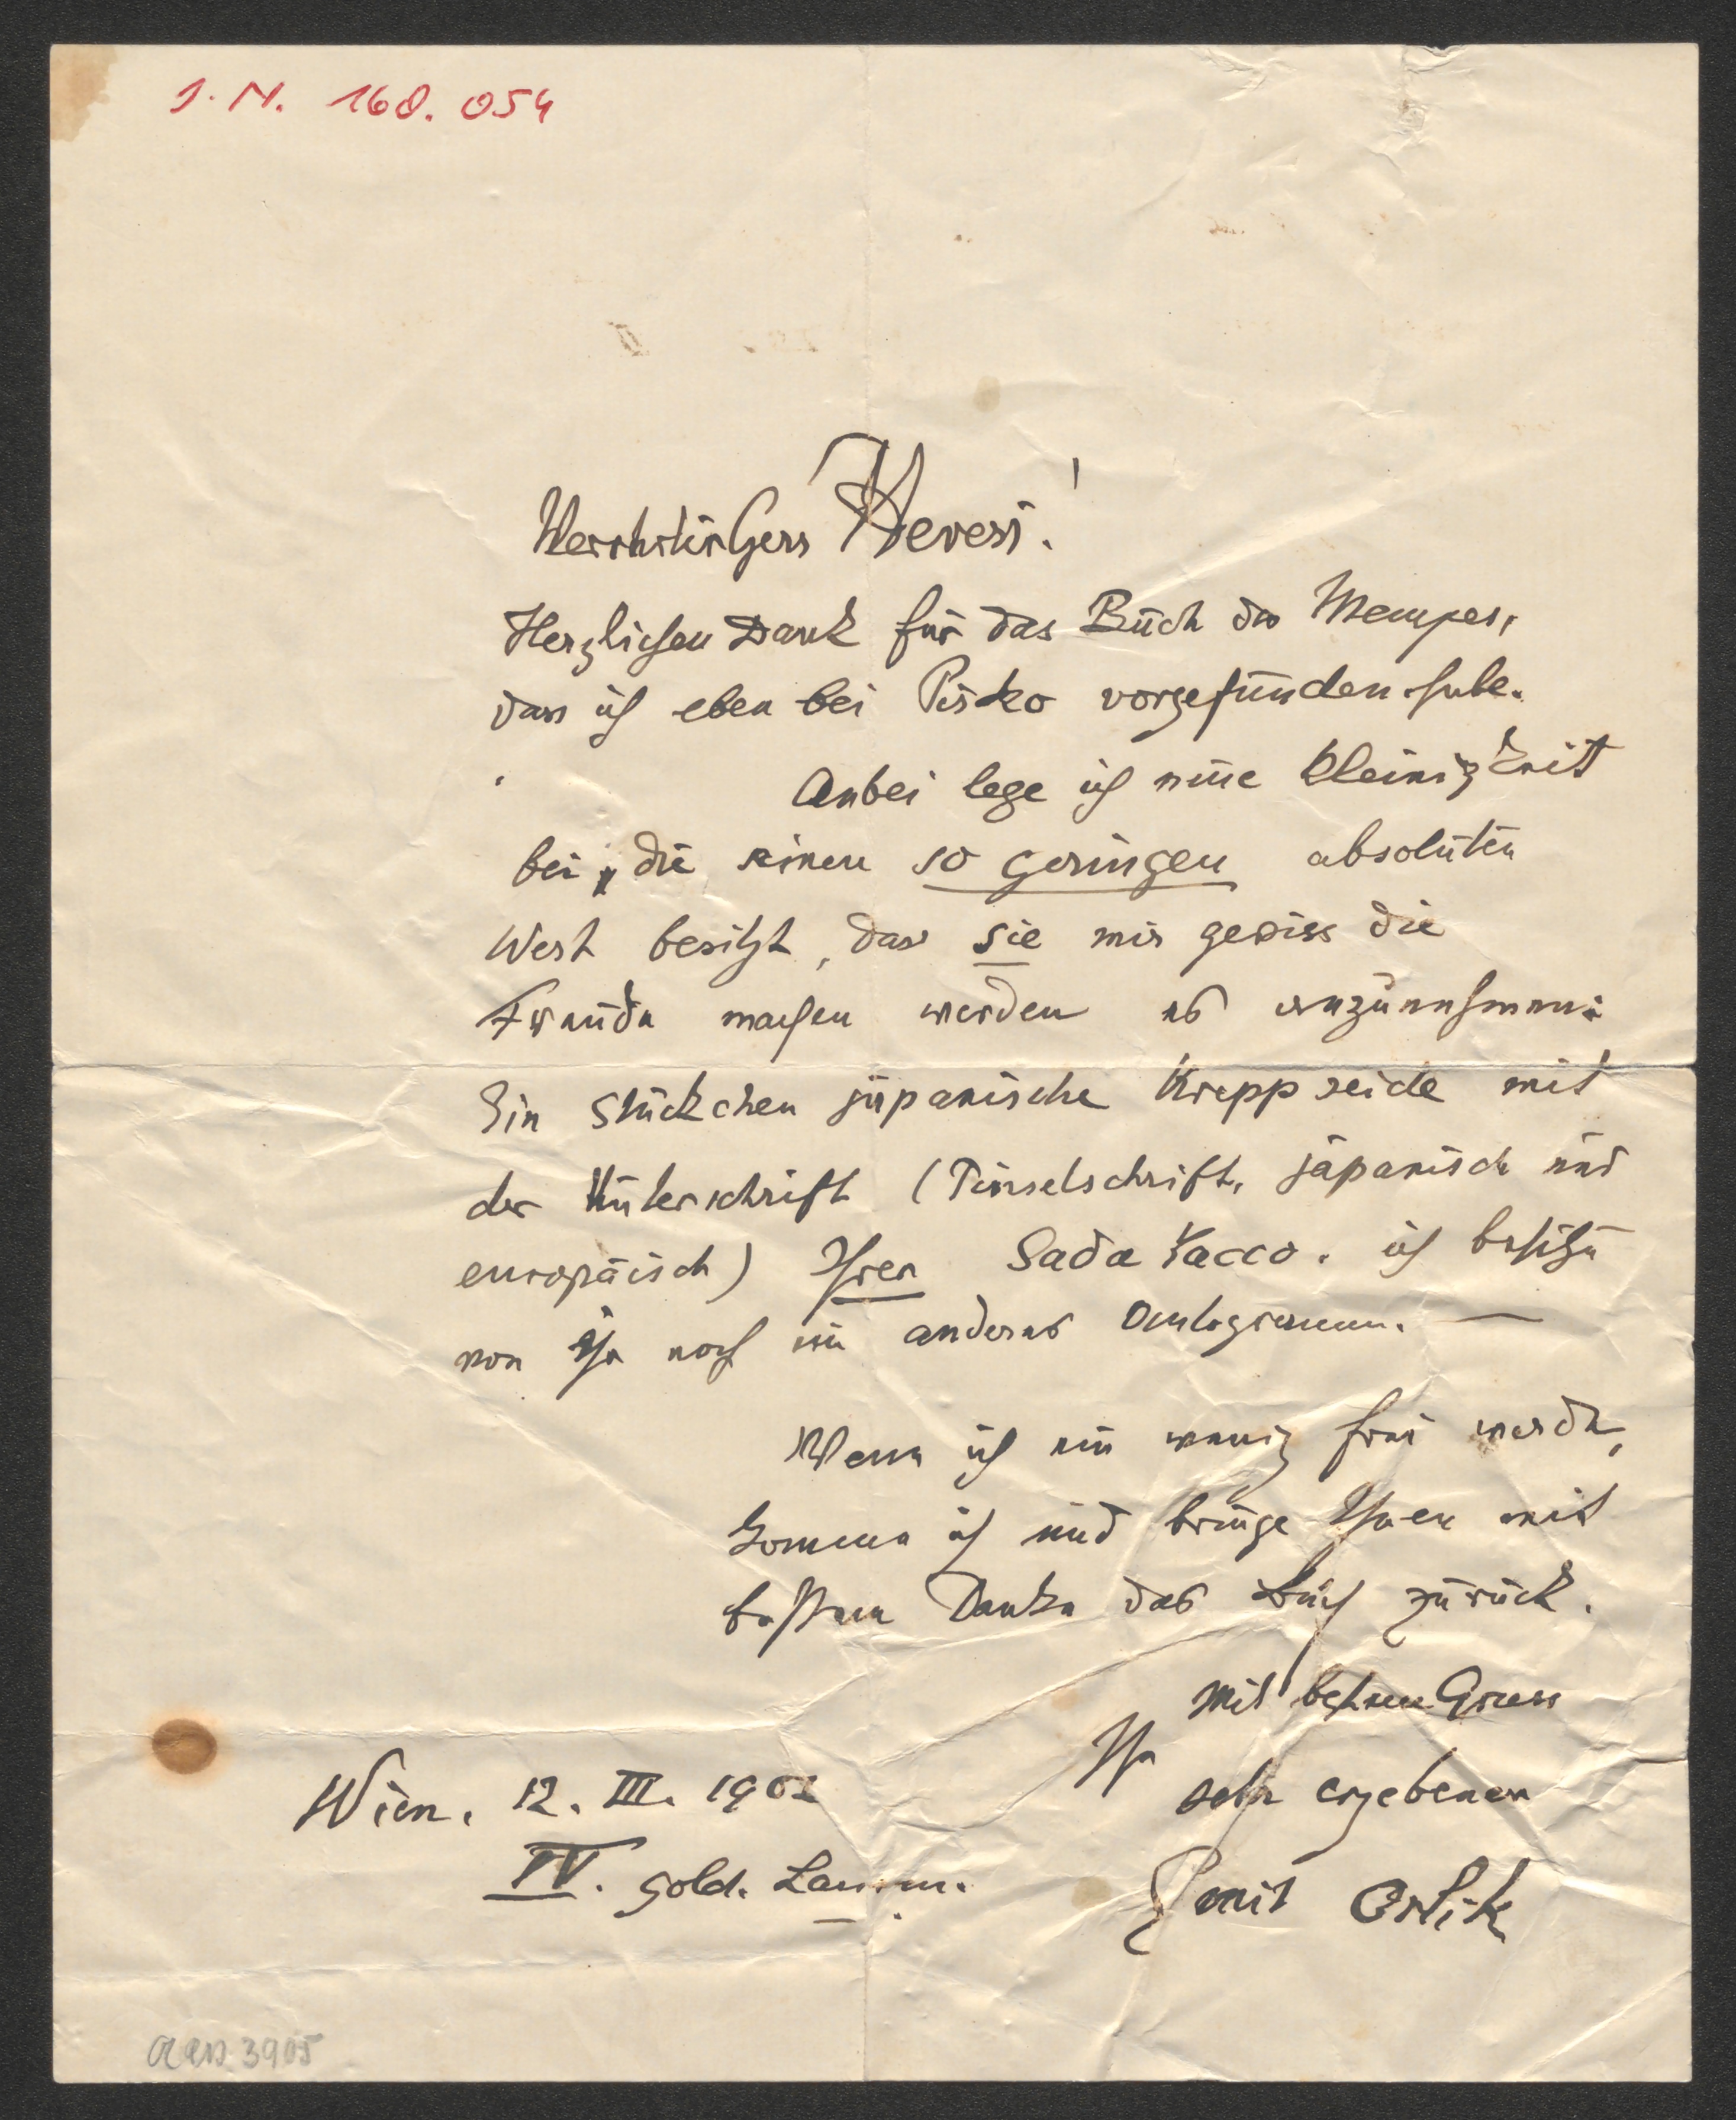 I.N. 168.054
Verehrter Herr Hevesi!
Herzlichen Dank für das Buch des Mempes,
dass ich eben bei Pisko vorgefunden habe.
Anbei lege ich eine Kleinigkeit
bei, die einen so geringen absoluten
Wert besitzt, dass Sie mir gewiss die
Freude machen werden es anzunehmen:
Ein Stückchen japanische Kreppseide mit
der Unterschrift (Pinselschrift, japanisch und
europäisch) Ihrer Sada Yacco. ich besitze
von ihr noch ein anderes Autogramm. —
Wenn ich ein wenig frei werde,
komme ich und bringe Ihnen mit
bestem Danke das Buch zurück.
Mit bestem Gruss
Ihr
sehr ergebener
Emil Orlik
Wien. 12. III. 1902
IV. gold. Lamm.
3905